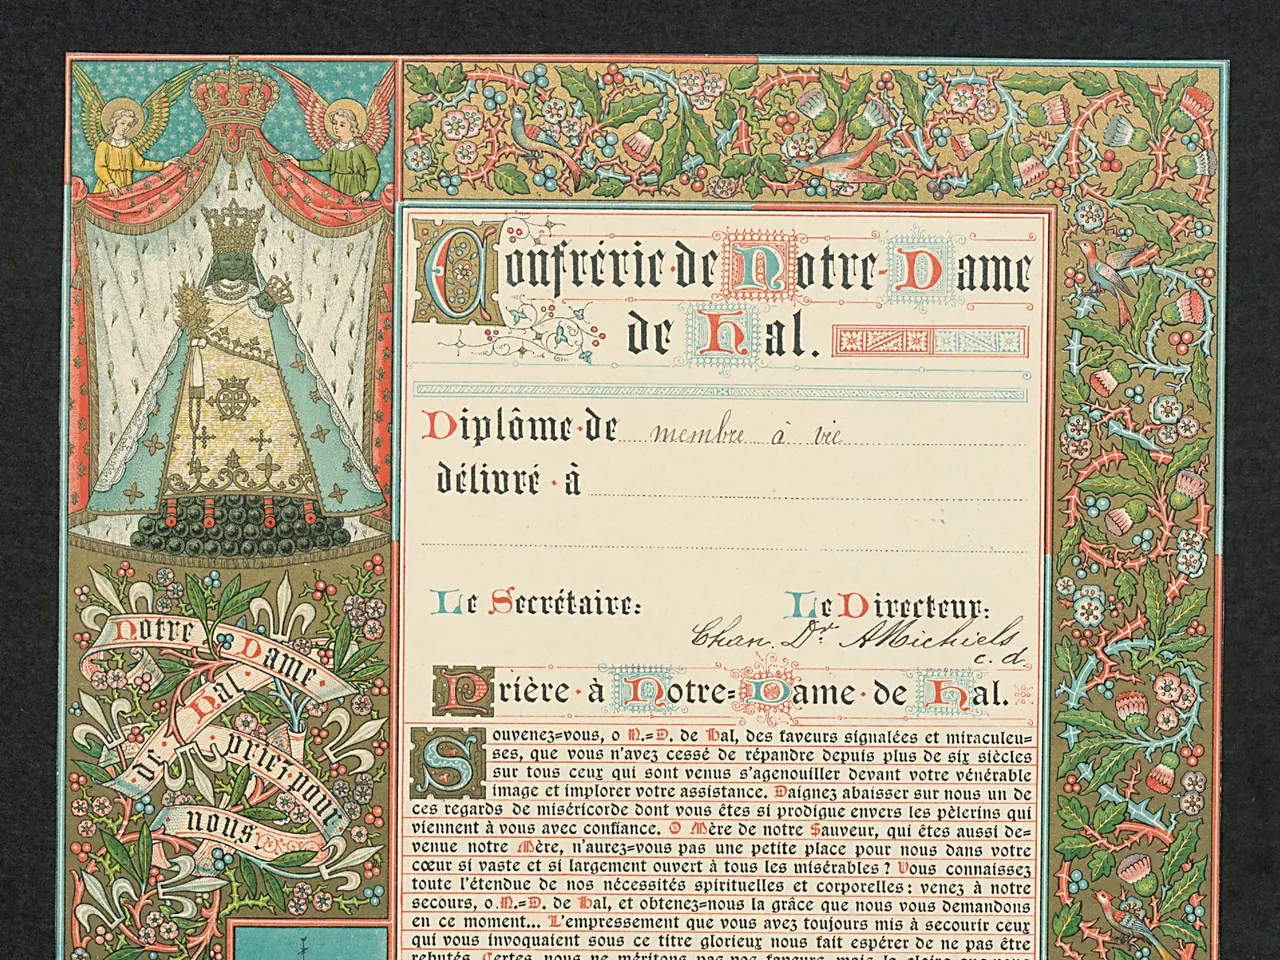 Confrérie·de Notre-Dame
de Hal.
Diplôme·de membre à vie
délivré·à
Le Secrétaire: Le Directeur:
Chan. Dr. AMichiels
c. d.
Prière·à Notre=Dame·de Hal.
Souvenez=vous, o N.=D. de Hal, des faveurs signalées et miraculeu=
ses, que vous n'avez cessé de répandre depuis plus de six siècles
sur tous ceux qui sont venus s'agenouiller devant votre vénérable
image et implorer votre assistance. Daignez abaisser sur nous un de
ces regards de miséricorde dont vous êtes si prodigue envers les pèlerins qui
viennent à vous avec confiance. O Mère de notre Sauveur, qui êtes aussi de=
venue notre Mère, n'aurez=vous pas une petite place pour nous dans votre
cœur si vaste et si largement ouvert à tous les misérables? Vous connaissez
toute l'étendue de nos nécessités spirituelles et corporelles: venez à notre
secours, o.N.=D. de Hal, et obtenez=nous la grâce que nous vous demandons
en ce moment... L'empressement que vous avez toujours mis à secourir ceux
qui vous invoquaient sous ce titre glorieux nous fait espérer de ne pas être
rebutés. Certes, nous ne méritons pas vos faveurs, mais la gloire que nous
Notre Dame
de Hal
priez·pour
nous